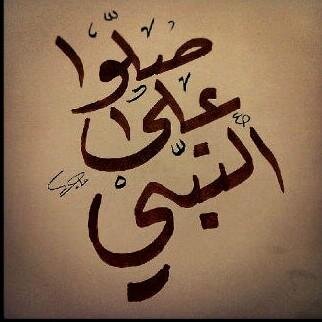 صلّوا
على
النبيّ